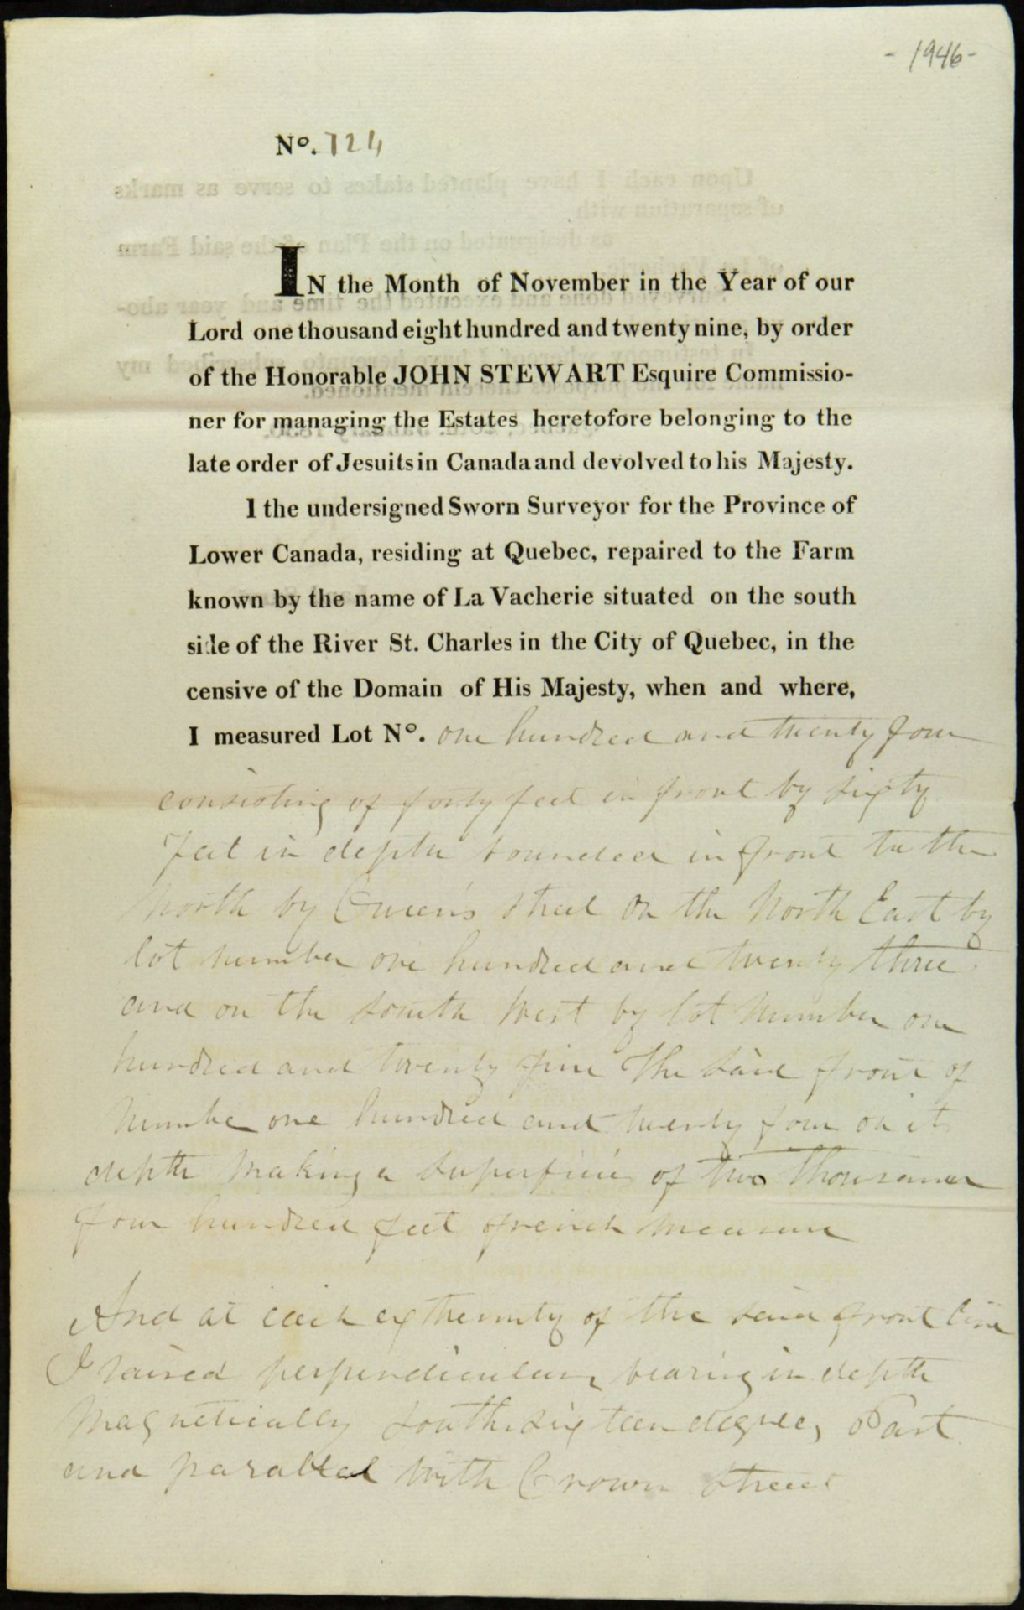 - 1946 -
No. 124
IN the Month of November in the Year of our
Lord one thousand eight hundred and twenty nine, by order
of the Honorable JOHN STEWART Esquire Commissio-
ner for managing the Estates heretofore belonging to the
late order of Jesuits in Canada and devolved to his Majesty.
I the undersigned Sworn Surveyor for the Province of
Lower Canada, residing at Quebec, repaired to the Farm
known by the name of La Vacherie situated on the south
side of the River St. Charles in the City of Quebec, in the
censive of the Domain of His Majesty, when and where,
I measured Lot No. one hundred and twenty four
consisting of forty feet in front by sixty
feet in depth bounded in front to the
North by Queen's Street on the North East by
lot number one hundred and twenty three
and on the South West by lot number one
hundred and twenty five The said front of
Number one hundred and twenty four on its
depth making a superficie of two thousand
four hundred feet french measure
And at each extremity of the said front line
I raised perpendicular bearing in depth
Magnetically South sixteen degrees East
and parallel with Crown Street